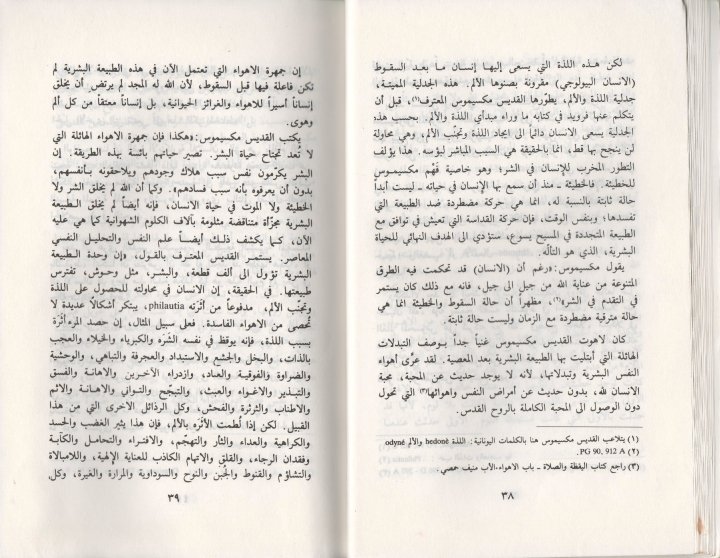 لكن هذه اللذة التي يسعى إليها إنسان ما بعد السقوط
(الانسان البيولوجي) مقرونة بصنوها الألم. هذه الجدلية المميتة،
جدلية اللذة والألم، يطوّرها القديس مكسيموس المعترف(١)، قبل أن
يتكلم عنها فرويد في كتابه ما وراء مبدأي اللذة والألم. وبحسب هذه
الجدلية يسعى الانسان دائماً الى ايجاد اللذة وتجنّب الألم، وهي محاولة
لن ينجح بها قط، انما بالحقيقة هي السبب المباشر لبؤسه. هذا يؤلف
التطور المخرب للإنسان في الشر؛ وهو خاصية فهم مكسيموس
للخطيئة. فالخطيئة ـ منذ أن سمع بها الإنسان في حياته ـ ليست أبداً
حالة ثابتة بالنسبة له، انما هي حركة مضطردة ضد الطبيعة التي
تفسدها؛ وبنفس الوقت، فإن حركة القداسة التي تعيش في توافق مع
الطبيعة المتجددة في المسيح يسوع، ستؤدي الى الهدف النهائي للحياة
البشرية، الذي هو التألّه.
يقول مكسيموس: «رغم أن (الانسان) قد تحكمت فيه الطرق
المتنوعة من عناية الله من جيل الى جيل، فانه مع ذلك كان يستمر
في التقدم في الشر»(٢)، مظهراً أن حالة السقوط والخطيئة انما هي
حالة مترقية مضطردة مع الزمان وليست حالة ثابتة.
كان لاهوت القديس مكسيموس غنياً جداً بوصف التبدلات
الهائلة التي أبتليت بها الطبيعة البشرية بعد المعصية. لقد عرّى أهواء
النفس البشرية وتبدلاتها، لأنه لا يوجد حديث عن المحبة، محبة
الانسان لله، بدون حديث عن أمراض النفس واهوائها(٣) التي تحول
دون الوصول الى المحبة الكاملة بالروح القدس.
(١) يتلاعب القديس مكسيموس هنا بالكلمات اليونانية: اللذة hedonè والألم odyné
(٢) PG 90, 912 A.
(٣) راجع كتاب اليقظة والصلاة ـ باب الاهواء ـ الأب منيف حمصي.
٣٨
إن جمهرة الاهواء التي تعتمل الآن في هذه الطبيعة البشرية لم
تكن فاعلة فيها قبل السقوط، لأن الله له المجد لم يرتض أن يخلق
إنساناً أسيراً للاهواء والغرائز الحيوانية، بل إنساناً معتقاً من كل ألم
وهوى.
يكتب القديس مكسيموس: «هكذا فإن جمهرة الاهواء الهائلة التي
لا تُعد تجتاح حياة البشر. تصير حياتهم بائسة بهذه الطريقة. إن
البشر يكرّمون نفس سبب هلاك وجودهم ويلاحقونه بأنفسهم،
بدون أن يعرفوه بأنه سبب فسادهم». وكما أن الله لم يخلق الشر ولا
الخطيئة ولا الموت في حياة الانسان، فإنه أيضاً لم يخلق الطبيعة
البشرية مجزّأة متناقضة مثلومة بآلاف الكلوم الشهوانية كما هي عليه
الآن، كما يكشف ذلك أيضاً علم النفس والتحليل النفسي
المعاصر. يستمر القديس المعترف بالقول، «إن وحدة الطبيعة
البشرية تؤول الى ألف قطعة، والبشر، مثل وحوش، تفترس
طبيعتها. في الحقيقة، إن الانسان في محاولته للحصول على اللذة
وتجنّب الألم، مدفوعاً من أثرته philautia، يبتكر أشكالاً عديدة لا
تُحصى من الاهواء الفاسدة. فعلى سبيل المثال، إن حصد المرء أثَرَة
بسبب اللذة، فإنه يوقظ في نفسه الشَرَه والكبرياء والخيلاء والعجب
بالذات، والبخل والجشع والاستبداد والعجرفة والتباهي، والوحشية
والضراوة والفوقية والعناد، وازدراء الآخرين والاهانة والفسق
والتبذير والاغواء والعبث، والتبجّح والتواني والاهانة والاثم
والاطناب والثرثرة والفحش، وكل الرذائل الاخرى التي من هذا
القبيل. لكن إذا لُطمت الأثَرَه بالألم، فإن هذا يثير الغضب والحسد
والكراهية والعداء والثأر والتهجّم، والافتراء والتحامل والكآبة
وفقدان الرجاء، والقلق والاتهام الكاذب للعناية الإلهية، واللامبالاة
والتشاؤم والقنوط والجُبن والنوح والسوداوية والمرارة والغيرة، وكل
٣٩